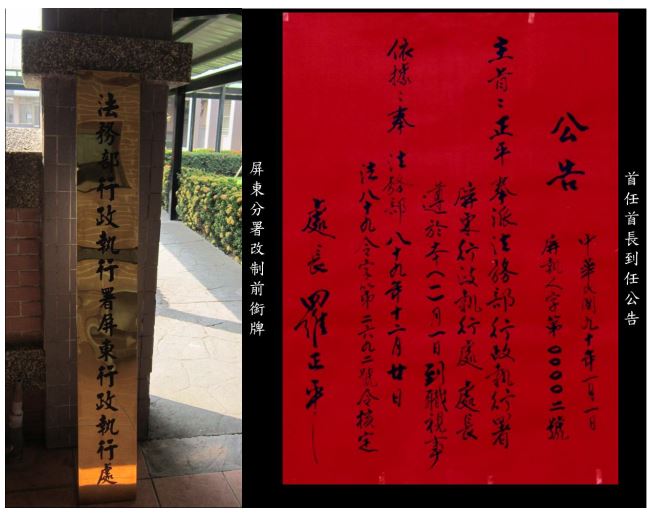 法務部行政執行署屏東行政執行處
屏東分署改制前銜牌
首任首長到任公告
公告
中華民國九十年一月一日
屏執人字第0000二號
主旨:正平奉派法務部行政執行署
屏東行政執行處 處長
遵於本(一)月一日到職視事
依據:奉 法務部 八十九年十二月廿日
法八十九令字第二六九二號令核定
處長 羅正平